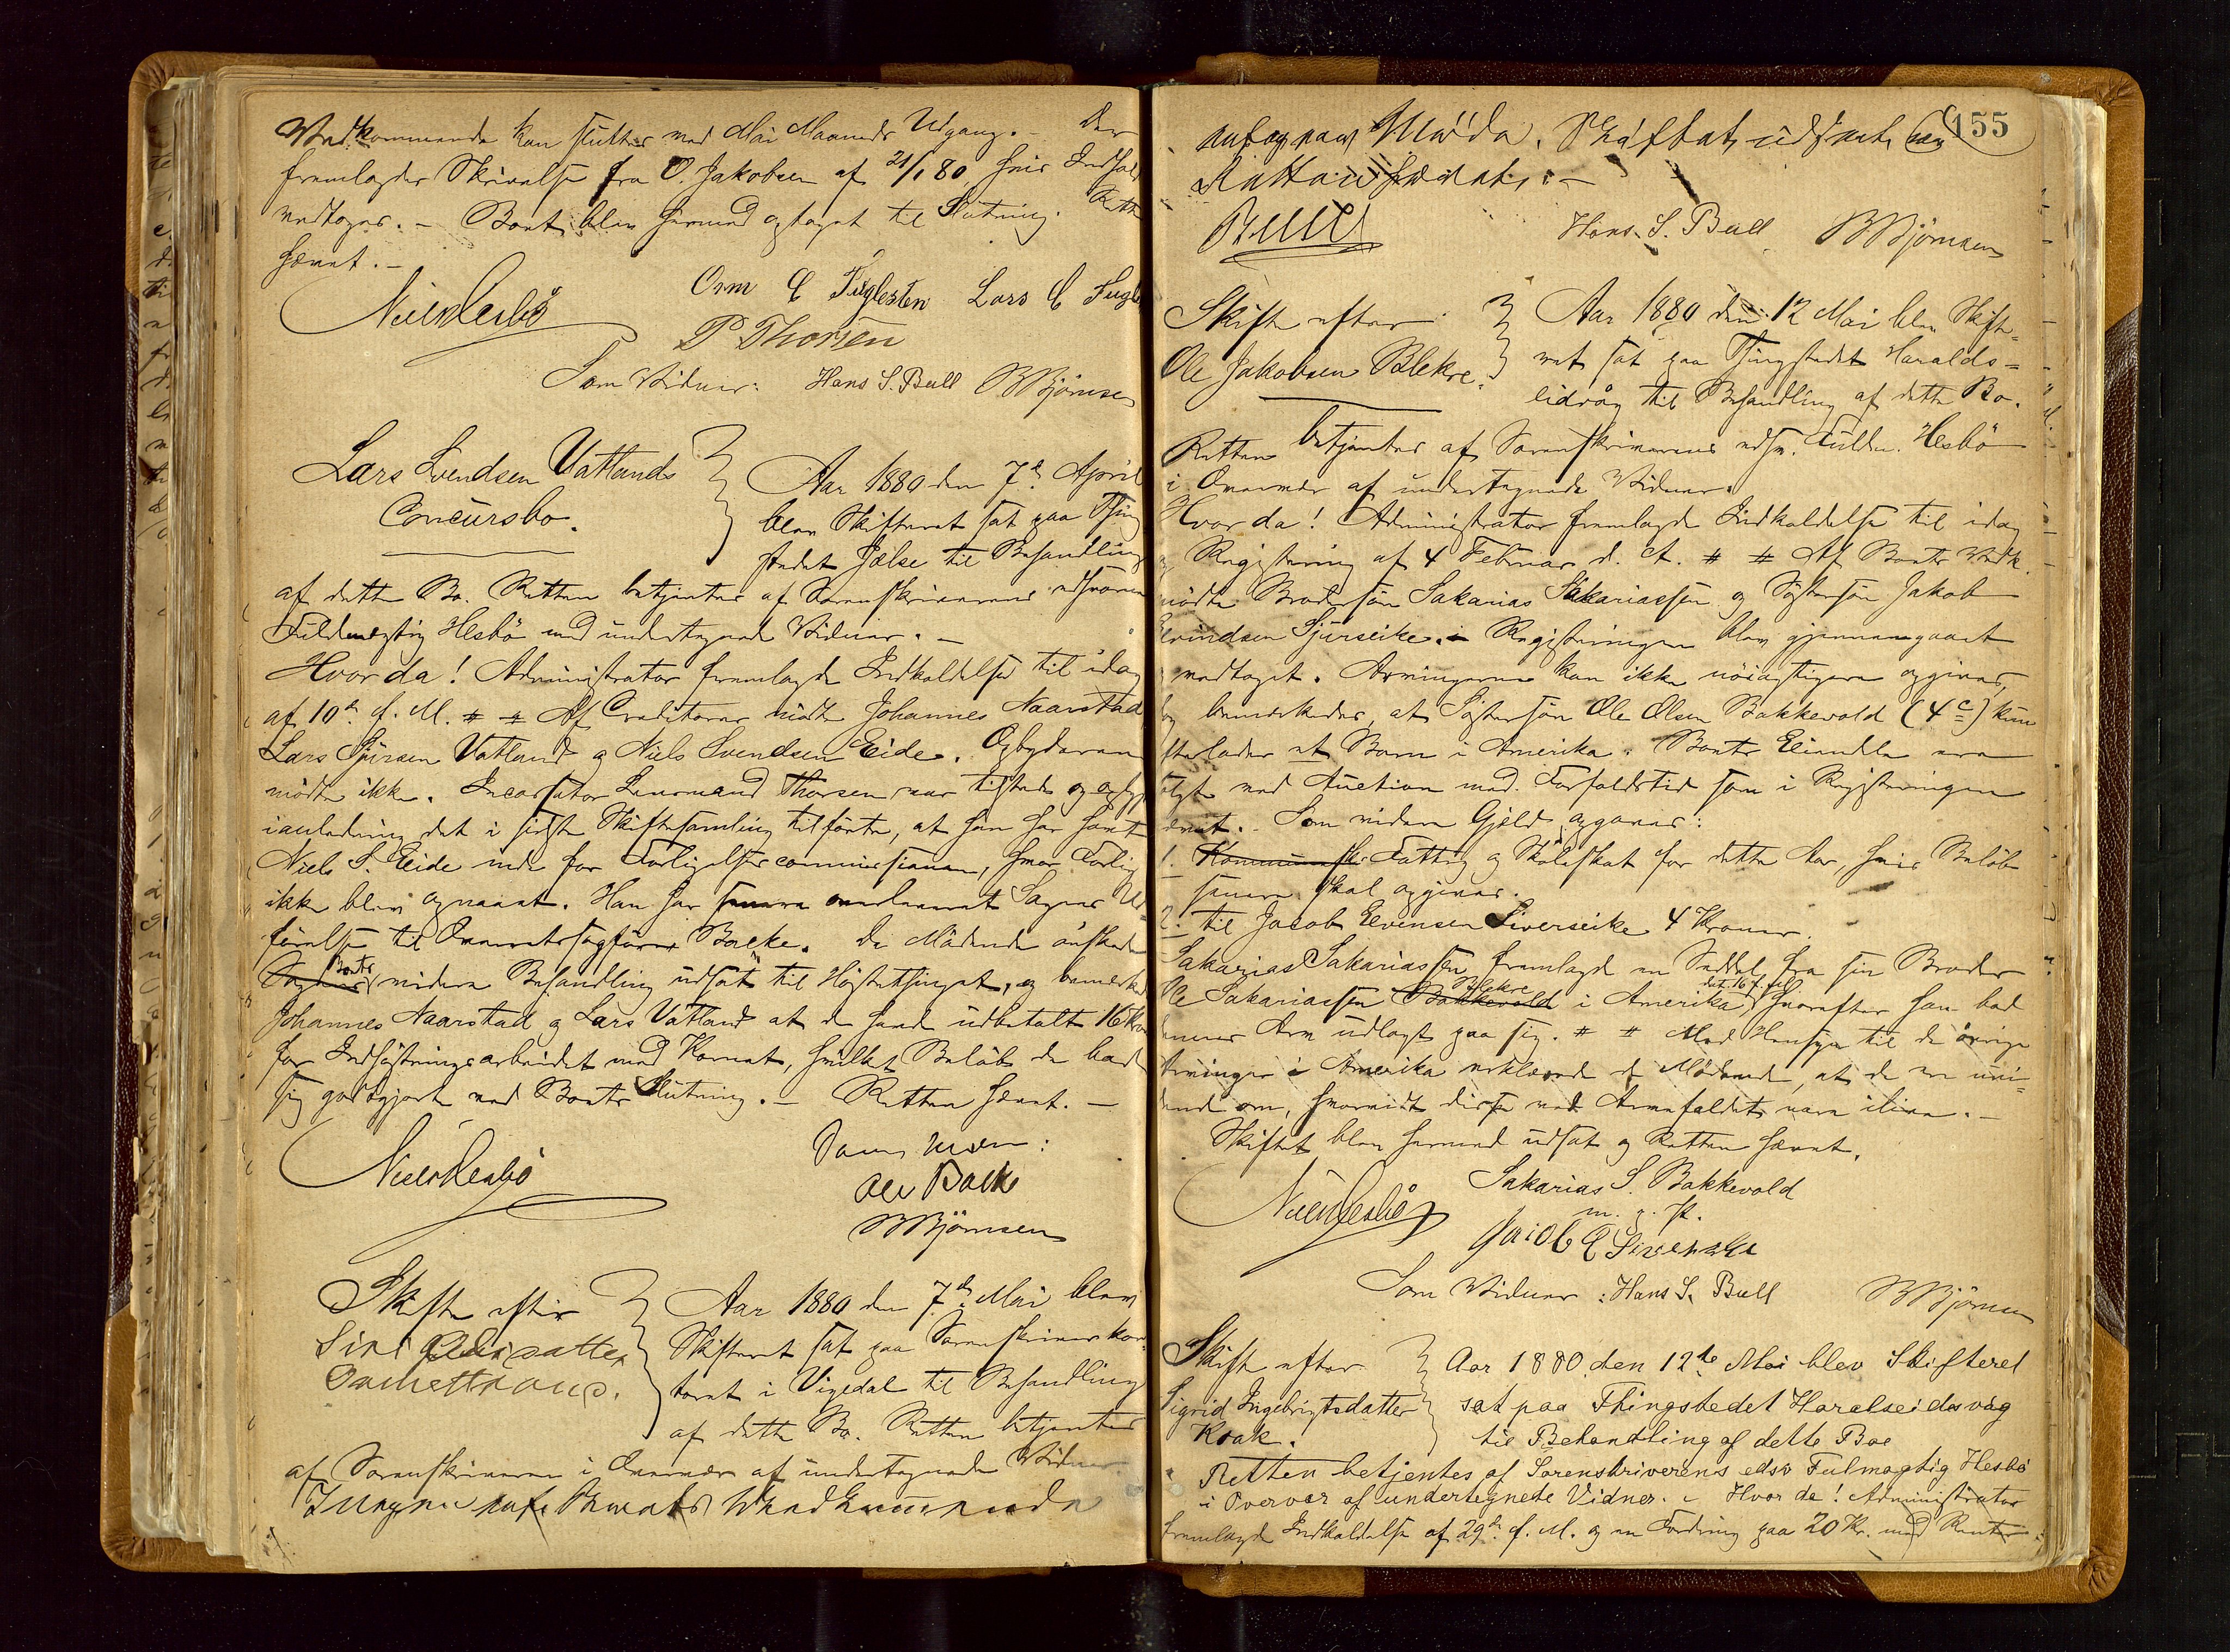 Vedkommende kan sluttes ved Mai Maaneds Udgang. – Der
fremlagdes Skrivelse fra O. Jakobsen af 21/1 80, hvis Indhold
vedtoges. – Boet blev hermed optaget til Slutning. Retten
hævet. –
Niels Hesbö Orm E Fuglesten Lars E Fugle
P Thorsen
Som Vidner: Hans S. Bull B Björnsen
Lars Svendsen Vatlands
Concursbo.
Aar 1880 den 7de April
blev Skifteret sat paa Thing
stedet Jælse til Behandling
af dette Bo. Retten betjentes af Sorenskriverens edsvorne
Fuldmægtig Hesbö med undertegnede Vidner. –
Hvor da! Administrator fremlagde Indkaldelse til idag
af 10de f. M. # # Af Creditorer mödte Johannes Naarstad
Lars Sjursen Vatland og Niels Svendsen Eide. Opbyderen
mödte ikke. Incassator Lensmand Thorsen var tilstede og oplyste
ianledning det i sidste Skiftesamling tilförte, at han har havt
Niels S. Eide inde for Forligelsescommissionen, hvor Forlig
ikke blev opnaaet. Han har senere overleveret Sagens Ud-
förelse til Overretssagförer Backe. De Mödende önskede
Sagens Boets videre Behandling udsat til Höstethinget, og bemærkede
Johannes Naarstad og Lars Vatland at de havde udbetalt 16 Kr
for Indhöstningsarbeidet med Kornet, hvilket Belöb de bad
sig godtgjort ved Boets Slutning. – Retten hævet. –
Niels Hesbö
Som Vidner:
Ole Backe
B Björnsen
Skifte efter
Siri
Aar 1880 den 7de Mai blev
Skifteret sat paa Sorenskriverkon-
toret i Vigedal til Behandling
af dette Bo. Retten betjentes
af Sorenskriveren i Overvær af undertegnede Vidner
Ingen af Boets Vedkommende
155
möde. Skiftet udsat og
Retten hævet. –
Bull Hans S. Bull B Björnsen
Skifte efter
Ole Jakobsen Blekre.
Aar 1880 den 12 Mai blev Skifte-
ret sat paa Thingstedet Haralds-
eidvåg til Behandling af dette Bo.
Retten betjentes af Sorenskriverens edsv. Fuldm. Hesbö
i Overvær af undertegnede Vidner.
Hvor da! Administrator fremlagde Indkaldelse til idag
og Registrering af 4 Februar d. A. # # Af Boets Vedk.
mödte Brodersön Sakarias Sakariassen og Söstersön Jakob
Eevindsen Sjurseike. – Registreringen blev gjennemgaaet
vedtaget. Arvingerne kan ikke nöiagtigere opgives,
og bemærkedes, at Söstersön Ole Olsen Bakkevold (4 c) kun
efterlader et Barn i Amerika. Boets Eiendele ere
solgt ved Auction med Forfaldstid som i Registreringen
nævnt. Som videre Gjeld opgaves:
1. Kommunesk. Fattig og Skoleskat for dette Aar, hvis Belöb
senere skal opgives.
2. til Jacob Eevinsen Siverseike 4 Kroner.
Sakarias Sakariassen fremlagde en Seddel fra sin Broder
Ole Sakariassen Bakkevold Blekre i Amerika, dat. 16 f., hvorefter han bad
dennes Arv udlagt paa sig. # # Med Hensyn til de övrige
Arvinger i Amerika erklærede de Mödende, at de ere uvi-
dende om, hvorvidt disse ved Arvefaldet vare ilive. –
Skiftet blev hermed udsat og Retten hævet.
Niels Hesbö Sakarias S. Bakkevold
m. p. P.
Jacob E Siverseike
Som Vidner: Hans S. Bull B Björnsen
Skifte efter
Sigrid Ingebrigtsdatter
Krak.
Aar 1880 den 12te Mai blev Skifteret
sat paa Thingstedet Haralseidsvåg
til Behandling af dette Boe
Retten betjentes af Sorenskriverens edsv Fulmægtig Hesbö
i Overvær af undertegnede Vidner. – Hvor da! Administrator
fremlagde Indkaldelse af 29de f. M. og en Fordring paa 20 Kr. med Renter